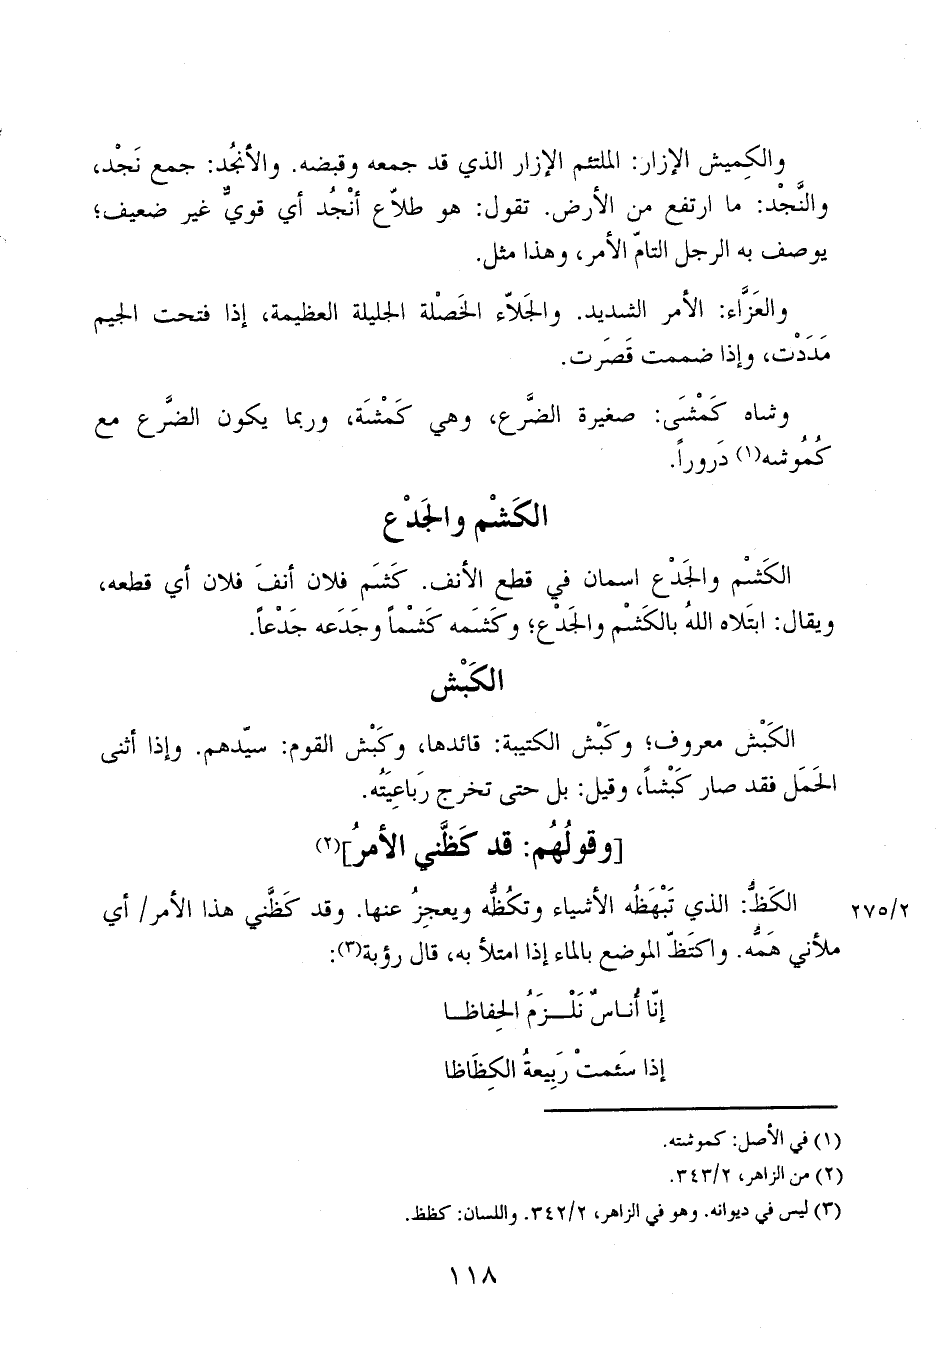 والكَمِيش الإزار: الملتئم الإزار الذي قد جمعه وقبضه. والأنجُد: جمع نَجْد،
والنَّجْد: ما ارتفع من الأرض. تقول: هو طلاّع أنْجُد أي قويٌّ غير ضعيف؛
يوصف به الرجل التامّ الأمر، وهذا مثل.
والعَزَّاء: الأمر الشديد. والجَلاّء الخَصْلة الجليلة العظيمة، إذا فتحت الجيم
مَدَدْت، وإذا ضممت قَصَرت.
وشاه كَمْشَى: صغيرة الضَّرع، وهي كَمْشَة، وربما يكون الضَّرع مع
كُمُوشه(١) دَروراً.
الكَشْم والجَدْع
الكَشْم والجَدْع اسمان في قطع الأنف. كَشَم فلان أنفَ فلان أي قطعه،
ويقال: ابتَلاه اللهُ بالكَشْم والجَدْع؛ وكَشَمه كَشْماً وجَدَعه جَدْعاً.
الكَبْش
الكَبْش معروف؛ وكَبْش الكتيبة: قائدها، وكَبْش القوم: سيّدهم. وإذا أثنى
الحَمَل فقد صار كَبْشاً، وقيل: بل حتى تخرج رَباعِيَتُه.
[وقولُهُم: قد كَظَّني الأمرُ](٢)
الكَظُّ: الذي تَبْهَظُه الأشياء وتكُظُّه ويعجِزُ عنها. وقد كَظَّني هذا الأمر/ أي ٢٧٥/٢
ملأني هَمُّه. واكتَظّ الموضع بالماء إذا امتلأ به، قال رؤبة(٣):
إنّا أُناسٌ نَلْـزَمُ الحِفاظـا
إذا سَئمتْ رَبِيعةُ الكِظَاظا
(١) في الأصل: كموشته.
(٢) من الزاهر، ٣٤٣/٢.
(٣) ليس في ديوانه. وهو في الزاهر، ٣٤٢/٢. واللسان: كظظ.
١١٨